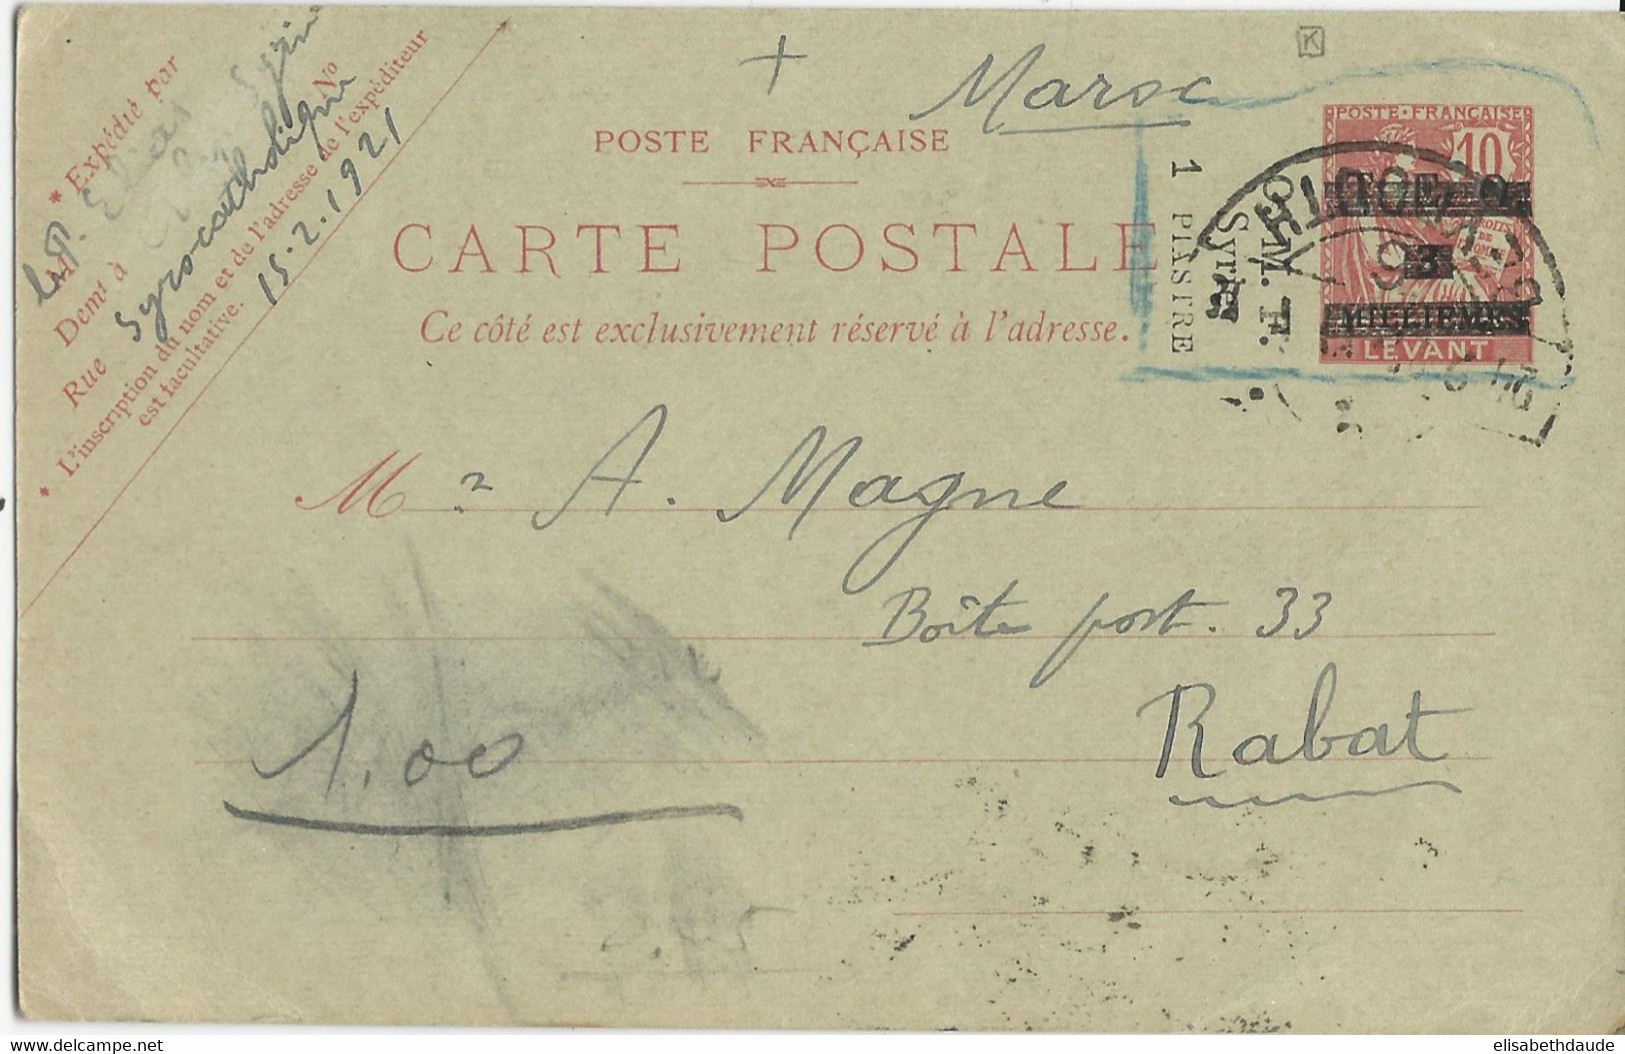 Maroc
K
POSTE FRANÇAISE
CARTE POSTALE
Ce côté est exclusivement réservé à l'adresse.
* Expédié par
Elias
Demt à
Syro-catholique
Rue
No
* L'inscription du nom et de l'adresse de l'expéditeur
est facultative.
15.2.1921
O. M. F.
Syrie
1 PIASTRE
POSTE FRANÇAISE
10
T. E. O.
3
MILLIEMES
LEVANT
M r A. Magne
Boîte post. 33
Rabat
1.00
delcampe.net
elisabethdaude